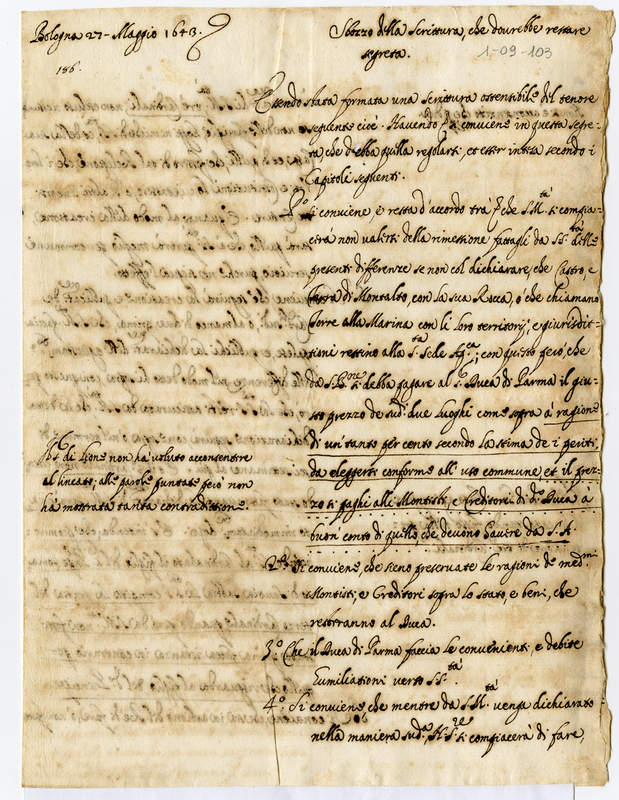 Bologna 27. Maggio 1643.
186.
Sbozzo della Scrittura, che dourebbe restare
segreta.
1-09-103
Essendo stata formata una Scrittura ostensibile del tenore
seguente cioè. Hauendo si conuiene in questa segre-
ta che debba quella regolarsi, et esser intesa secondo i
Capitoli seguenti.
P.º si conuiene, e resta d'accordo tra che S.M.tà si compia-
cerà non ualersi della rimessione fattagli da S.S.tà delle
presenti differenze se non col dichiarare, che Castro, e
Terra di Montalto, con la sua Rocca, ò che chiamano
Torre alla Marina con li loro territorij, e giurisdit-
tioni restino alla S.ta Sede Ap.ca; con questo però, che
da S.B.ne si debba pagare al S.r Duca di Parma il giu-
sto prezzo de sud.i due Luoghi come sopra à ragione
di un tanto per cento secondo la stima de i periti,
da eleggersi conforme all'uso commune, et il prez-
zo si paghi alli Montisti, e Creditori di d.º Duca à
buon conto di quello, che deuono hauere da S.A.
di Lione non ha uoluto acconsentire
al lineato; alle parole puntate però non
ha mostrata tanta contradittione.
2.º Si conuiene, che sieno preseruate le ragioni de med.mi
Montisti, e Creditori sopra lo stato, e beni, che
resteranno al Duca.
3.º Che il Duca di Parma faccia le conuenienti, e debite
humiliationi uerso S.S.tà.
4.º Si conuiene che mentre da S.M.tà uenga dichiarato
nella maniera sud.a, N.S.re si compiacerà di fare,